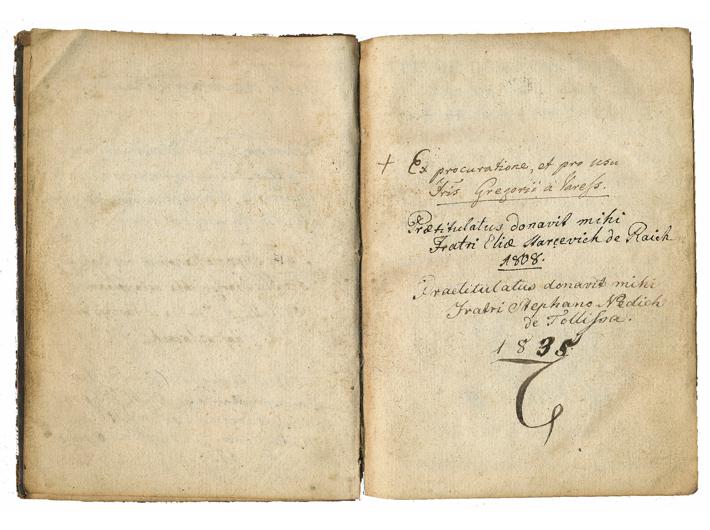 + Ex procuratione, et pro usu
Fris Gregorii à Varess.
Prætitulatus donavit mihi
Fratri Eliæ Starcevich de Raich
1808.
Praetitulatus donavit mihi
Fratri Stephano Nedich
de Tollissa.
1835